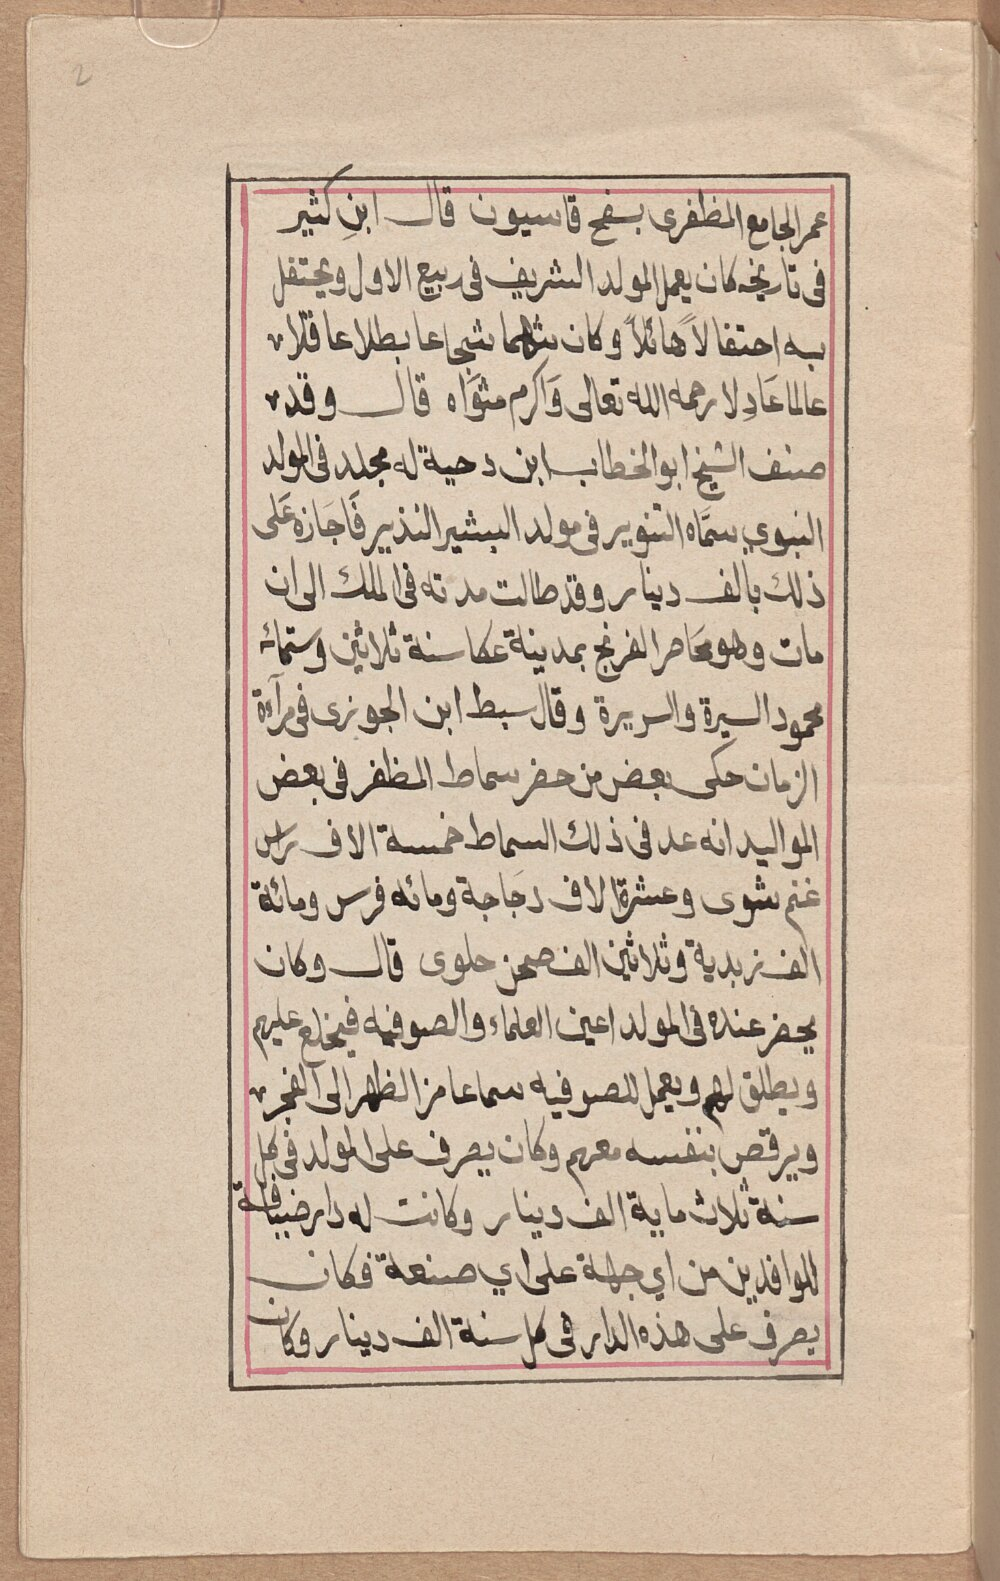 2
عمر الجامع المظفرى بسفح قاسيون قال ابنِ كثير
فى تاريخه كان يعمل المولد الشريف فى ربيع الاول ويحتفل
به احتفالاً هائلاً وكان شهما شجاعا بطلا عاقلا
عالما عَادِلا رحمه الله تعالى وَاكرم مثوَاه قال وقد
صنف الشيخ ابو الخطاب ابن دحية له مجلد فى المولد
النبوي سمَّاه التنوير فى مولد البشير النذير فَاجَازه عَلى
ذلك بالف دينار وقد طالت مدته فى الملك الى ان
مات وهو محَاصر الفرنج بمدينة عكا سنة ثلاثين وستمائه
محمود السيرة والسريرة وقال سبط ابن الجوزى فى مرآءة
الزمان حكى بعض من حضر سماط المظفر فى بعض
المواليد انه عد فى ذلك السماط خمسة الاف راس
غنم شوى وعشرة الاف دجَاجة ومائه فرس ومائة
الف زبدية وثلاثين الف صحن حلوى قال وكان
يحضر عنده فى المولد اعين العلماء والصوفيه فيخلع عليهم
ويطلق لهم ويعمل للصوفيه سماعا من الظهر الى الفجر
ويرقص بنفسه معهم وكان يصرف على المولد فى كل
سنة ثلاث ماية الف دينار وكانت له دار ضيافة
للوافدين من اي جهة على اي صنعة فكان
يصرف على هذه الدار فى كل سنة الف دينار وكان